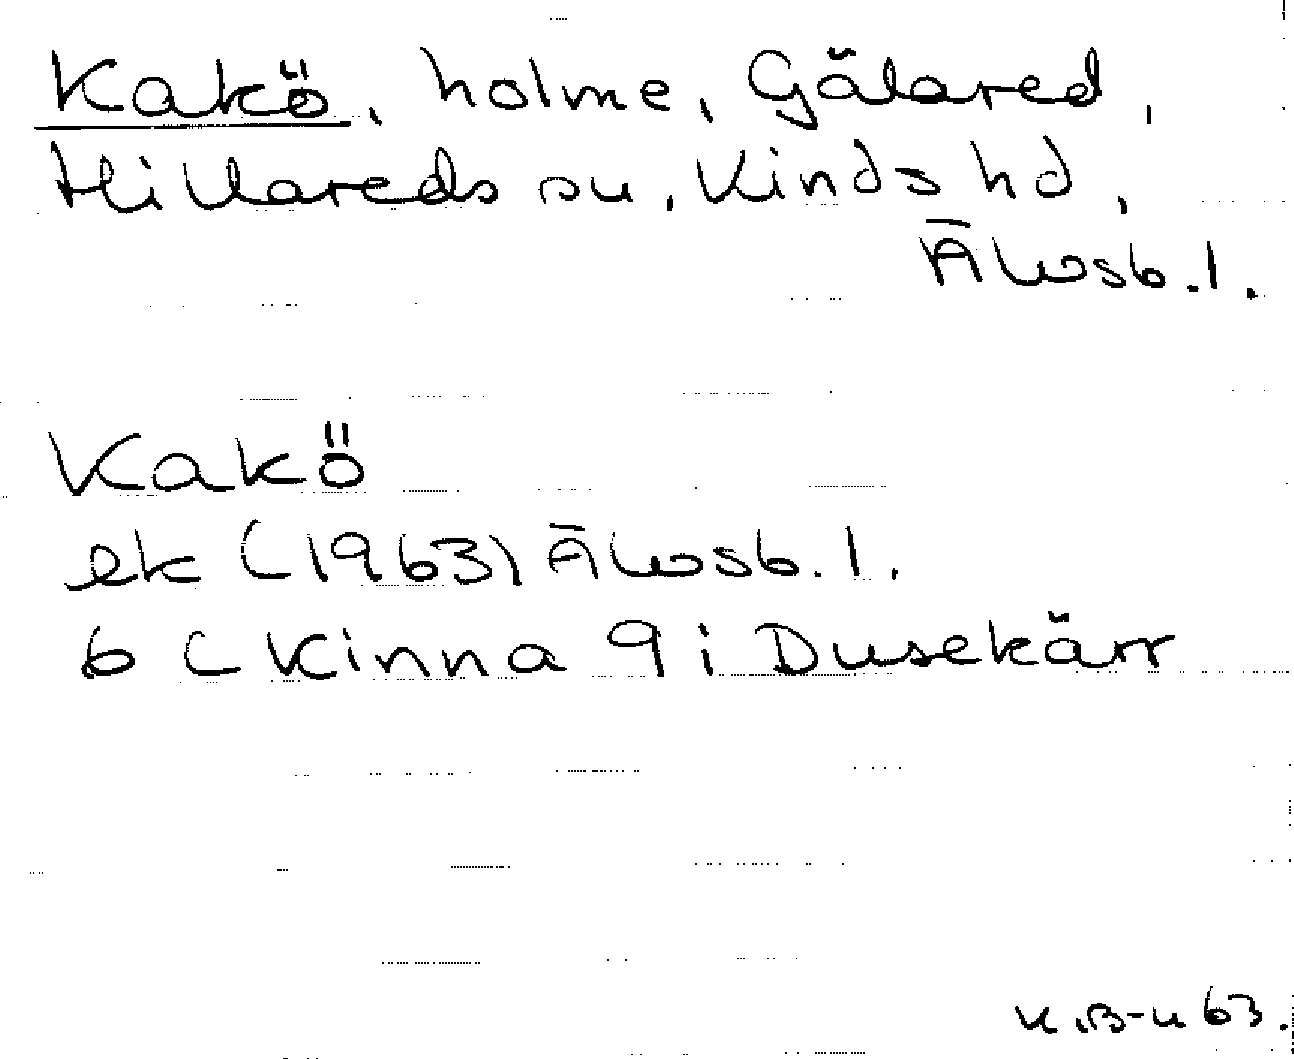 Kakö, holme, Gälared,
Hillareds sn, Kinds hd,
Älvsb. l.
Kakö
ek (1963) Älvsb. l.
6 C Kinna 9 i Dusekärr
63.